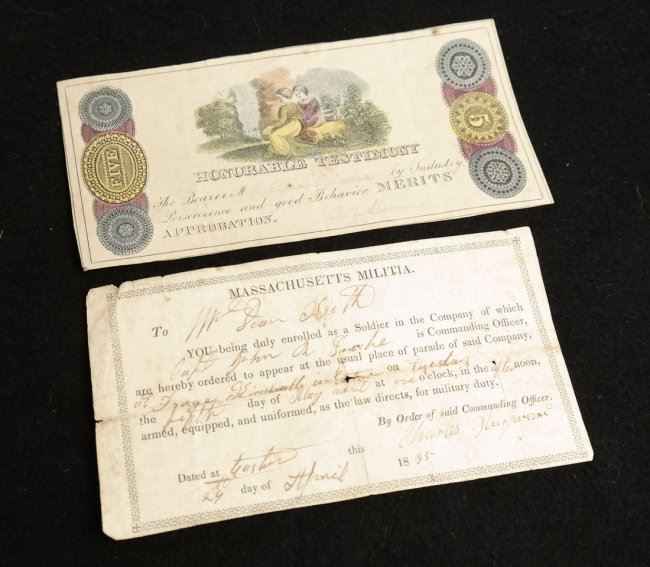 FIVE
5
HONORABLE TESTIMONY
The Bearer M by Industry
Perseverence and good Behavior, MERITS
APPROBATION.
MASSACHUSETTS MILITIA.
To Mr Dean Keith
YOU being duly enrolled as a Soldier in the Company of which
Capt John is Commanding Officer,
are hereby ordered to appear at the usual place of parade of said Company,
at on Tuesday
the fifth day of May next at one o'clock, in the noon,
armed, equipped, and uniformed, as the law directs, for military duty.
By Order of said Commanding Officer.
Charles
Dated at Easton this
day of April 1835